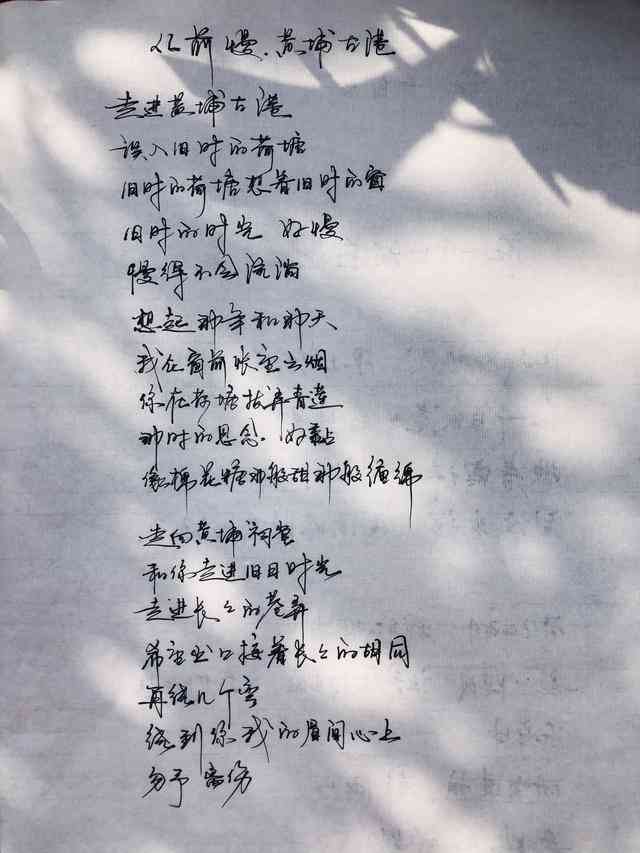 从前慢.黄埔古港
走进黄埔古港
误入旧时的荷塘
旧时的荷塘想着旧时的窗
旧时的时光 好慢
慢得不会流淌
想起那年和那天
我在窗前眺望云烟
你在荷塘拔弄青莲
那时的思念.好黏
像棉花糖那般甜那般缠绵
走向黄埔祠堂
和你走进旧日时光
走进长长的巷弄
希望出口接着长长的胡同
再绕几个弯
绕到你我的眉间心上
勿予 伤